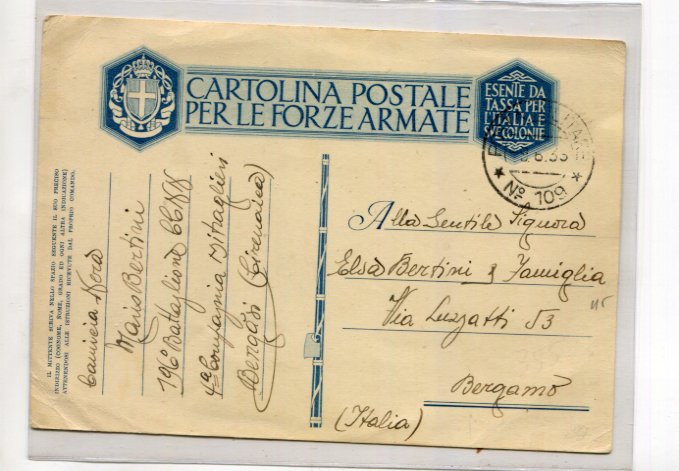 CARTOLINA POSTALE
PER LE FORZE ARMATE
ESENTE DA
TASSA PER
L'ITALIA E
SUE COLONIE
Nº 109
IL MITTENTE SCRIVA NELLO SPAZIO SEGUENTE IL SUO PRECISO
INDIRIZZO (COGNOME, NOME, GRADO ED OGNI ALTRA INDICAZIONE)
ATTENENDOSI ALLE ISTRUZIONI RICEVUTE DAL PROPRIO COMANDO.
Camicia Nera
Mario Bertini
196º Battaglione CCNN
4ª Compagnia Mitraglieri
Bengasi (Cirenaica)
Alla Gentile Signora
Elsa Bertini & Famiglia
Via Luzzatti 53
Bergamo
(Italia)